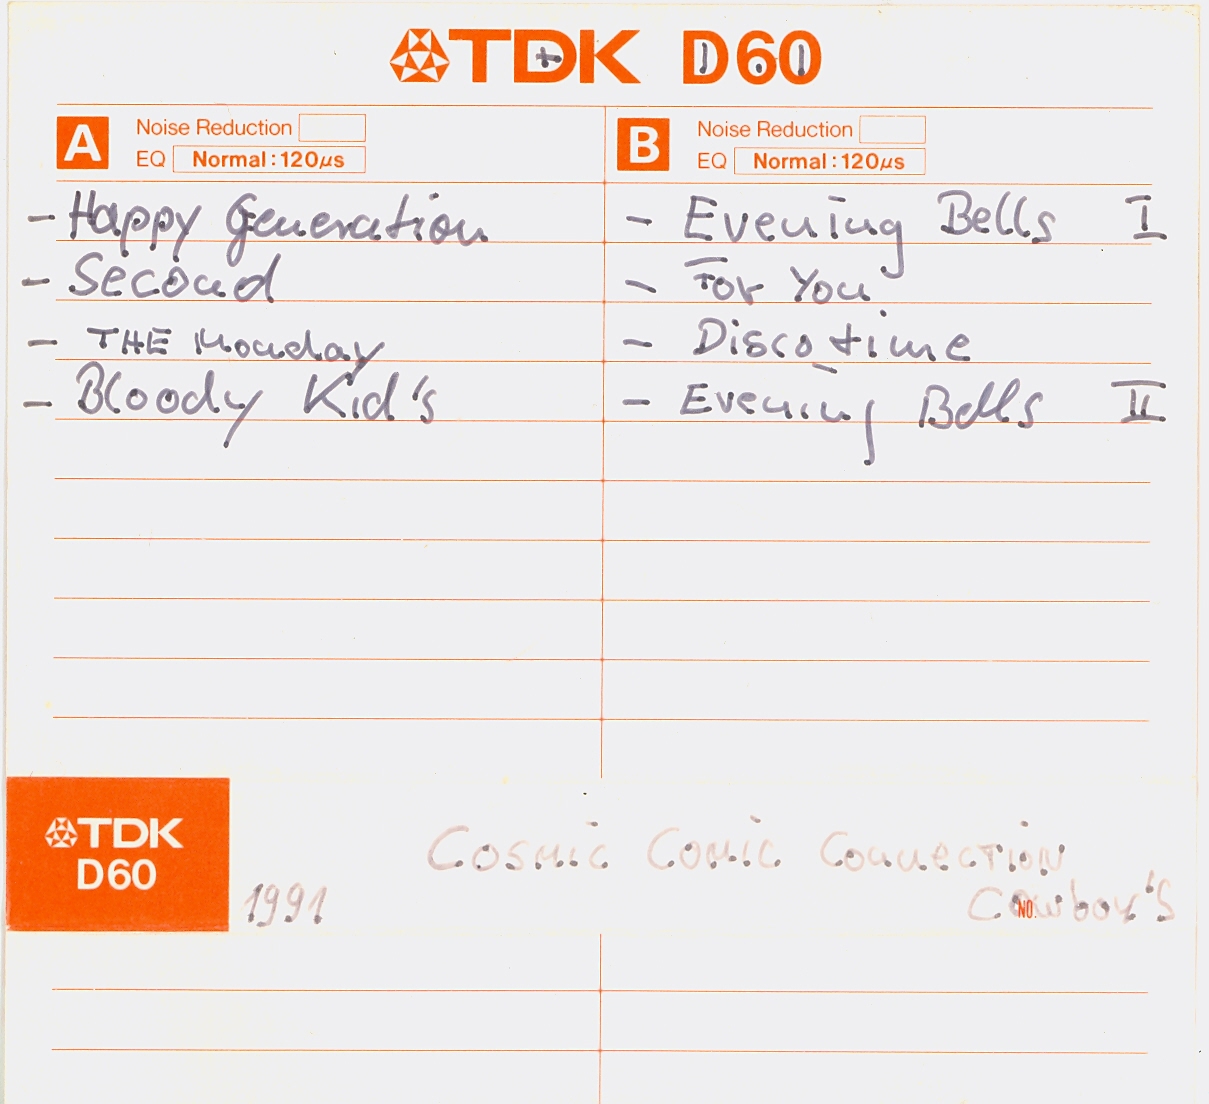 TDK D60
A Noise Reduction
EQ Normal : 120μs
B Noise Reduction
EQ Normal : 120μs
- Happy Generation
- Second
- THE Monday
- Bloody Kid's
- Evening Bells I
- For You
- Disco time
- Evening Bells II
TDK
D60
1991
Cosmic Comic Connection
Cowboy's
NO.